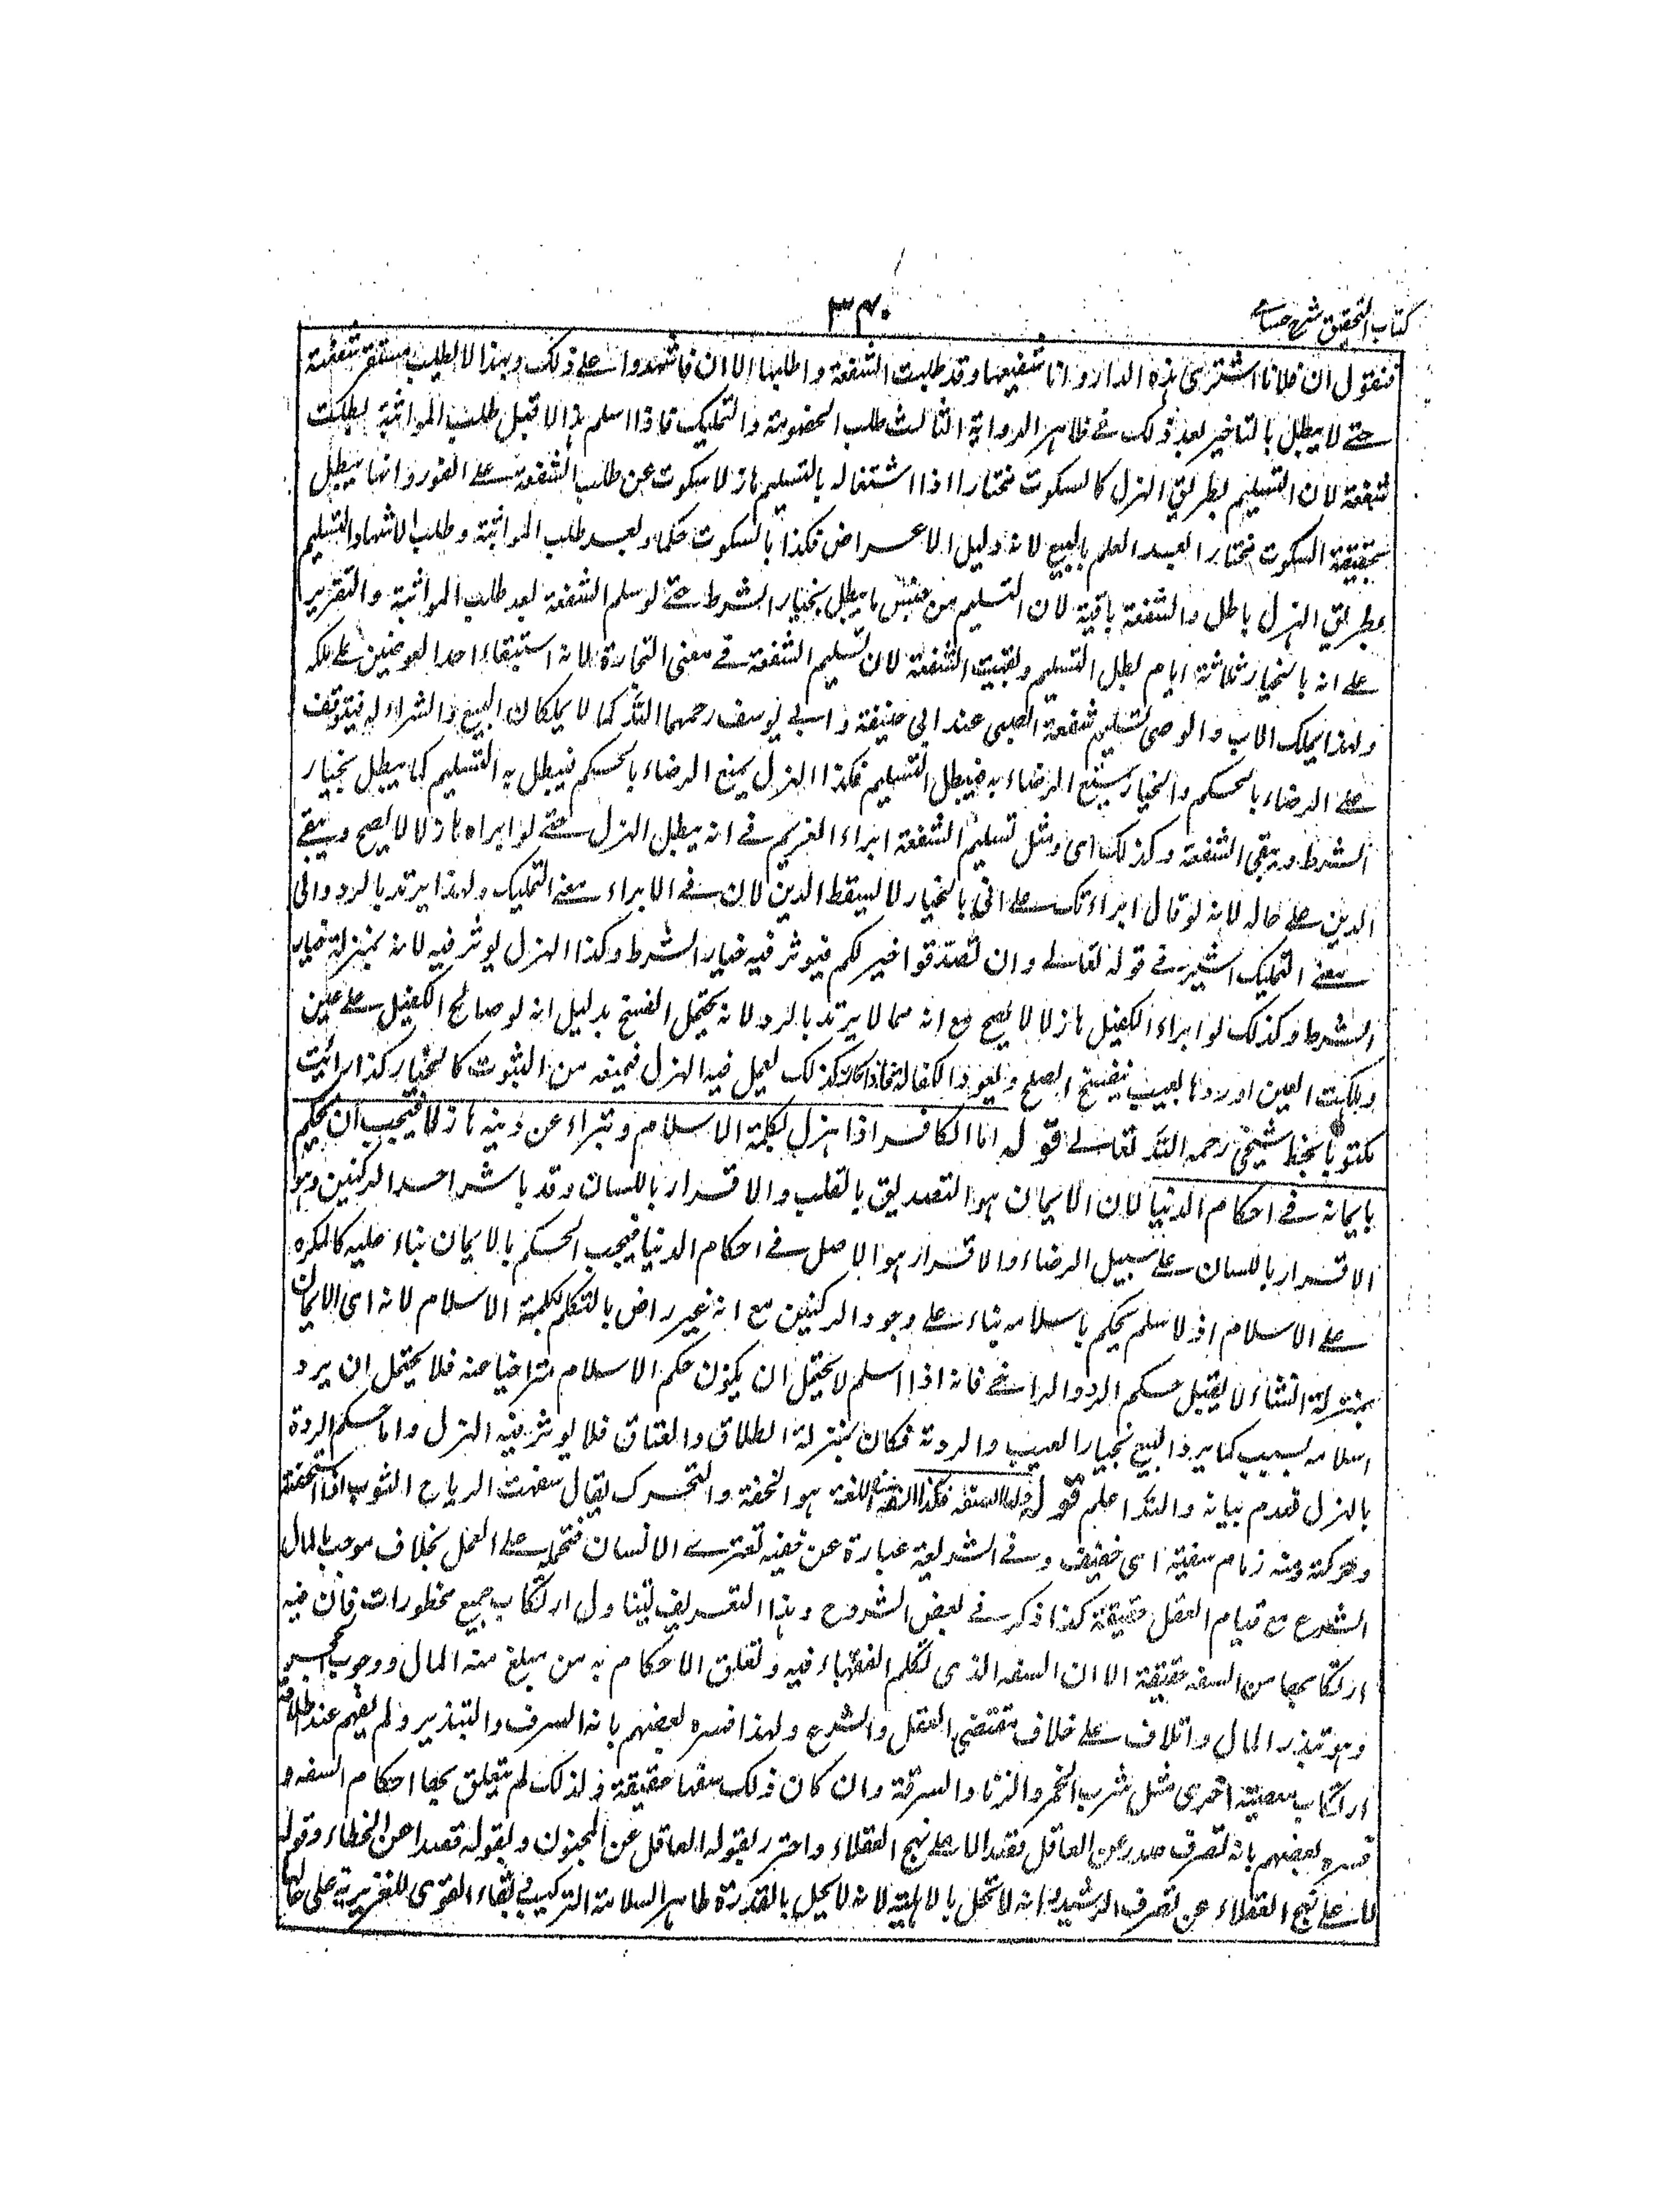 كتاب التحقيق شرح حسامي
٣٤٠
فنقول ان فلانا اشترى هذه الدار وانا شفيعها وقد طلبت الشفعة واطلبها الاان فاشهدوا على ذلك وبهذا الطلب يستقر شفعته
حتى لا يبطل بالتاخير بعد ذلك فى ظاهر الرواية الثالث طلب الخصومة والتمليك فاذا اسلم هازلا قبل طلب المواثبة بطلت
شفعته لان التسليم بطريق الهزل كالسكوت مختارا اذا اشتغاله بالتسليم هازلا سكوت عن طلب الشفعة على الفور وانها يبطل
بحقيقة السكوت مختارا بعد العلم بالبيع لانه دليل الاعراض فكذا بالسكوت حكما وبعد طلب المواثبة وطلب الاشهاد التسليم
بطريق الهزل باطل والشفعة باقية لان التسليم من جنس ما يبطل بخيار الشرط حتى لو سلم الشفعة بعد طلب المواثبة والتقرير
على انه بالخيار ثلاثة ايام بطل التسليم وبقيت الشفعة لان تسليم الشفعة فى معنى التجارة لانه استبقاء احد العوضين على ملكه
ولهذا يملك الاب والوصى تسليم شفعة الصبى عند ابى حنيفة وابى يوسف رحمهما الله كما لا يملكان البيع والشراء له فيتوقف
على الرضاء بالحكم والخيار يمنع الرضاء به فيبطل التسليم فكذا الهزل يمنع الرضاء بالحكم فيبطل به التسليم كما يبطل بخيار
الشرط ويبقى الشفعة وكذلك اى ومثل تسليم الشفعة ابراء الغريم فى انه يبطل الهزل حتى لو ابراه هازلا لا يصح ويبقى
الدين على حاله لانه لو قال ابراءتك على انى بالخيار لا يسقط الدين لان فى الابراء معنى التمليك ولهذا يرتد بالرد والى
معنى التمليك اشير فى قوله تعالى وان تصدقوا خير لكم فيوثر فيه خيار الشرط وكذا الهزل يوثر فيه لانه بمنزلة خيار
الشرط وكذلك لو ابراء الكفيل هازلا لا يصح مع انه مما لا يرتد بالرد لانه يحتمل الفسخ بدليل انه لو صالح الكفيل على عين
وهلكت العين او ردها بعيب ينفسخ الصلح ويعود الكفالة فاذا كان كذلك يعمل فيه الهزل فيمنعه من الثبوت كالخيار كذا رائيت
مكتوبا بخط شيخى رحمه الله تعالى قوله اما الكافر اذا هزل بكلمة الاسلام وتبراء عن دينه هازلا فيجب ان يحكم
بايمانه فى احكام الدنيا لان الايمان هو التصديق بالقلب والاقرار باللسان وقد باشر احد الركنين وهو
الاقرار باللسان على سبيل الرضاء والاقرار هو الاصل فى احكام الدنيا فيجب الحكم بالايمان بناء عليه كالمكره
على الاسلام اذا اسلم يحكم باسلامه بناء على وجود الركنين مع انه غير راض بالتكلم بكلمة الاسلام لانه اى الايمان
بمنزلة انشاء لا يقبل حكم الرد والتراخى فانه اذا اسلم لا يحتمل ان يكون حكم الاسلام متراخيا عنه فلا يحتمل ان يرد
اسلامه بسبب كما يرد البيع بخيار العيب والروية فكان بمنزلة الطلاق والعتاق فلا يوثر فيه الهزل واما حكم الردة
بالهزل فقدم بيانه والله اعلم قوله واما السفه فكذا السفه فى اللغة هو الخفة والتحرك يقال سفهت الرياح الثوب اذا استخفته
وحركته ومنه زمام سفيه اى خفيف وفى الشريعة عبارة عن خفية تعترى الانسان فتحمله على العمل بخلاف موجب المال
الشرع مع قيام العقل حقيقة كذا ذكر فى بعض الشروح وهذا التعريف يتناول ارتكاب جميع محظورات فان فيه
ارتكابها من السفه حقيقة الا ان السفه الذى تكلم الفقهاء فيه وتعلق الاحكام به من مبلغ منه المال ووجوب الحجر
وهو تبذير المال واتلاف على خلاف مقتضى العقل والشرع ولهذا فسره بعضهم بانه السرف والتبذير ولم يفهم عند اطلاقه
ارتكاب معصية اخرى مثل شرب الخمر والزنا والسرقة وان كان ذلك سفها حقيقة ولذلك لم يتعلق بها احكام السفه و
فسره بعضهم بانه تصرف صدر عن العاقل قصدا لا على نهج العقلاء واحترز بقوله العاقل عن المجنون وبقوله قصدا عن الخطاء وقوله
لا على نهج العقلاء عن تصرف الرشيد انه لا تخل بالاهلية لانه لا يخل بالقدرة ظاهرا لسلامة التركيب فى بقاء القوى الغريزية على حالها